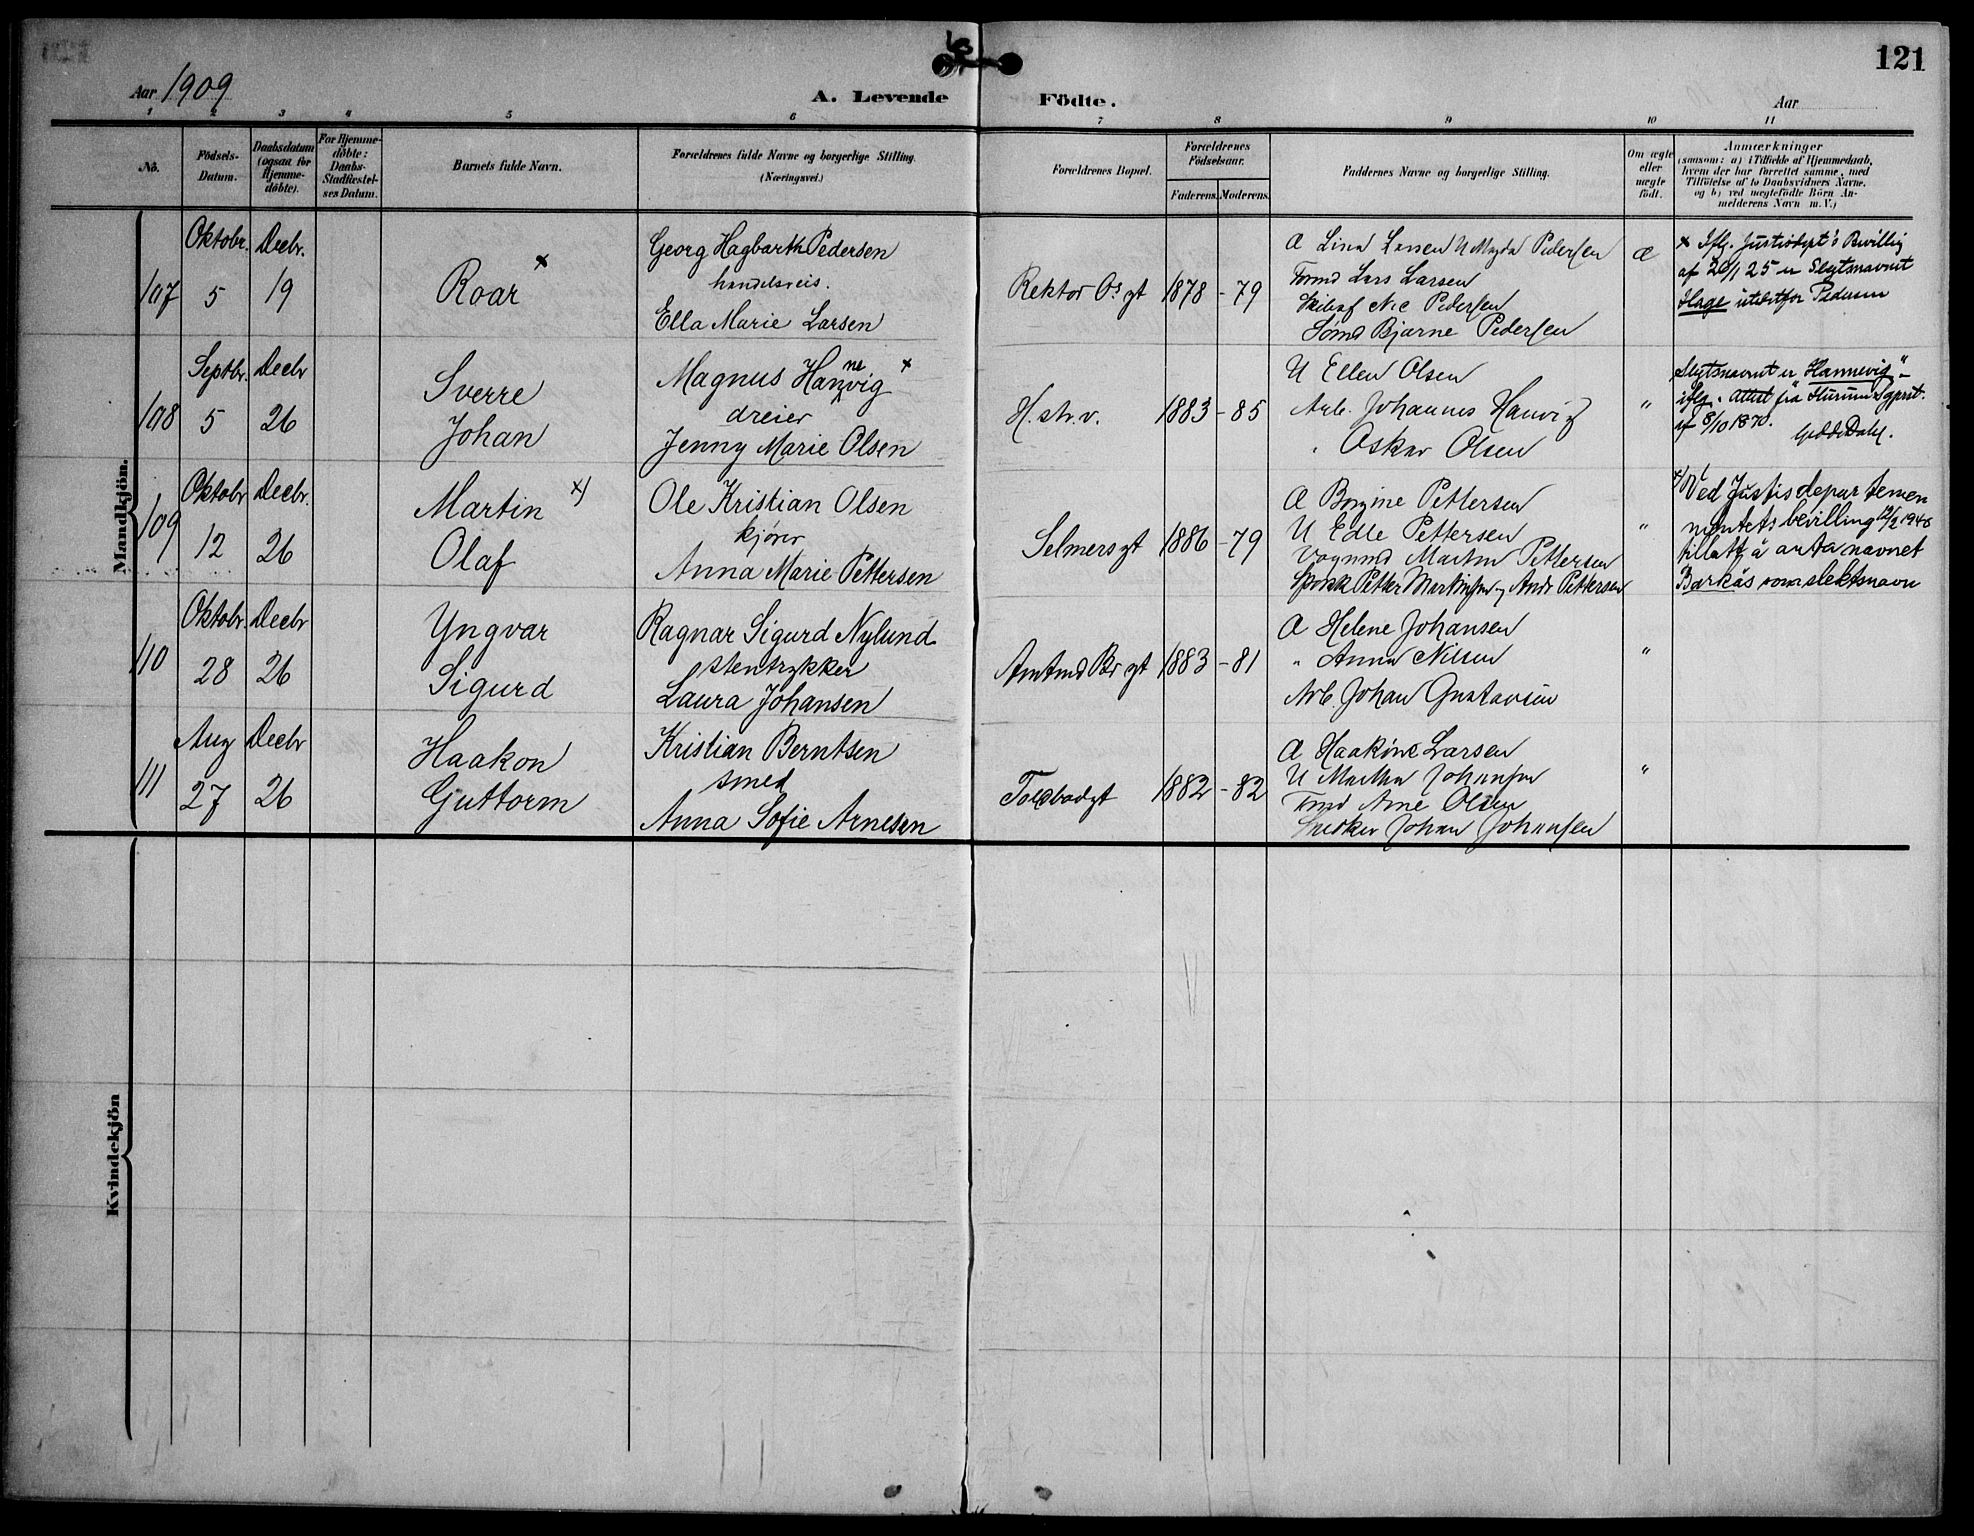 121
Aar 1909
A. Levende Födte.
Aar
1 2 3 4 5 6 7 8 9 10 11
No.
Födsels-Datum.
Daabsdatum (ogsaa for Hjemme-döbte).
For Hjemme-döbte: Daabs-Stadfæstel-ses Datum.
Barnets fulde Navn.
Forældrenes fulde Navne og borgerlige Stilling. (Næringsvei.)
Forældrenes Bopæl.
Forældrenes Födselsaar.
Faderens. Moderens.
Faddernes Navne og borgerlige Stilling.
Om ægte eller uægte födt.
Anmærkninger
(saasom: a) i Tilfælde af Hjemmedaab,
hvem der har forrettet samme, med
Tilföielse af to Daabsvidners Navne,
og b) ved uægtefödte Börn An-
melderens Navn m. V.)
Mandkjön.
107
Oktobr. 5
Decbr. 19
Roar x
Georg Hagbarth Pedersen
handelsreis.
Ella Marie Larsen
Rektor Os gt
1878 - 79
A Lina Larsen U Magda Pedersen
Tømd Lars Larsen
Nic Pedersen
Sømd Bjarne Pedersen
æ
x Iflg. Justisdept's Bevillig
af 20/1 25 er Slegtsnavnet
Hage istedetfor Pedersen
108
Septbr. 5
Decbr 26
Sverre
Johan
Magnus Hanvig x
ne
dreier
Jenny Marie Olsen
H. str. v.
1883 - 85
U Ellen Olsen
Arb. Johannes Hanvig
" Oskar Olsen
"
Slegtsnavnet er "Hannevig" -
iflg. attest fra Hurum Sgprst.
af 8/10 1870.
109
Oktobr 12
Decbr. 26
Martin x)
Olaf
Ole Kristian Olsen
kjører
Anna Marie Pettersen
Selmers gt
1886 - 79
A Borgine Pettersen
U Edle Pettersen
Vognmd Martin Pettersen
Petter Martinsen, Andr Pettersen
"
x) Ved Justisdepartemen
mentets bevilling 12/2 1946
tillatt å anta navnet
Barkås som slektsnavn
110
Oktobr. 28
Decbr 26
Yngvar
Sigurd
Ragnar Sigurd Nylund
stentrykker
Laura Johansen
Amtmd Bl gt
1883 - 81
A Helene Johansen
" Anna Nilsen
Arb. Johan Gustavsen
"
111
Aug 27
Decbr 26
Haakon
Guttorm
Kristian Berntsen
smed
Anna Sofie Arnesen
Toldbodgt
1882 - 82
A Haakine Larsen
U Martha Johansen
Tømd Arne Olsen
Snedker Johan Johansen
"
Kvindekjön